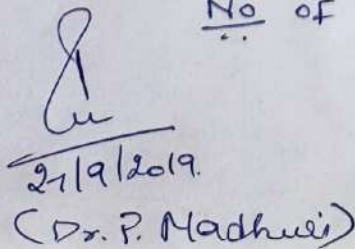 No of
21/9/2019.
(Dr. P. Madhuri)